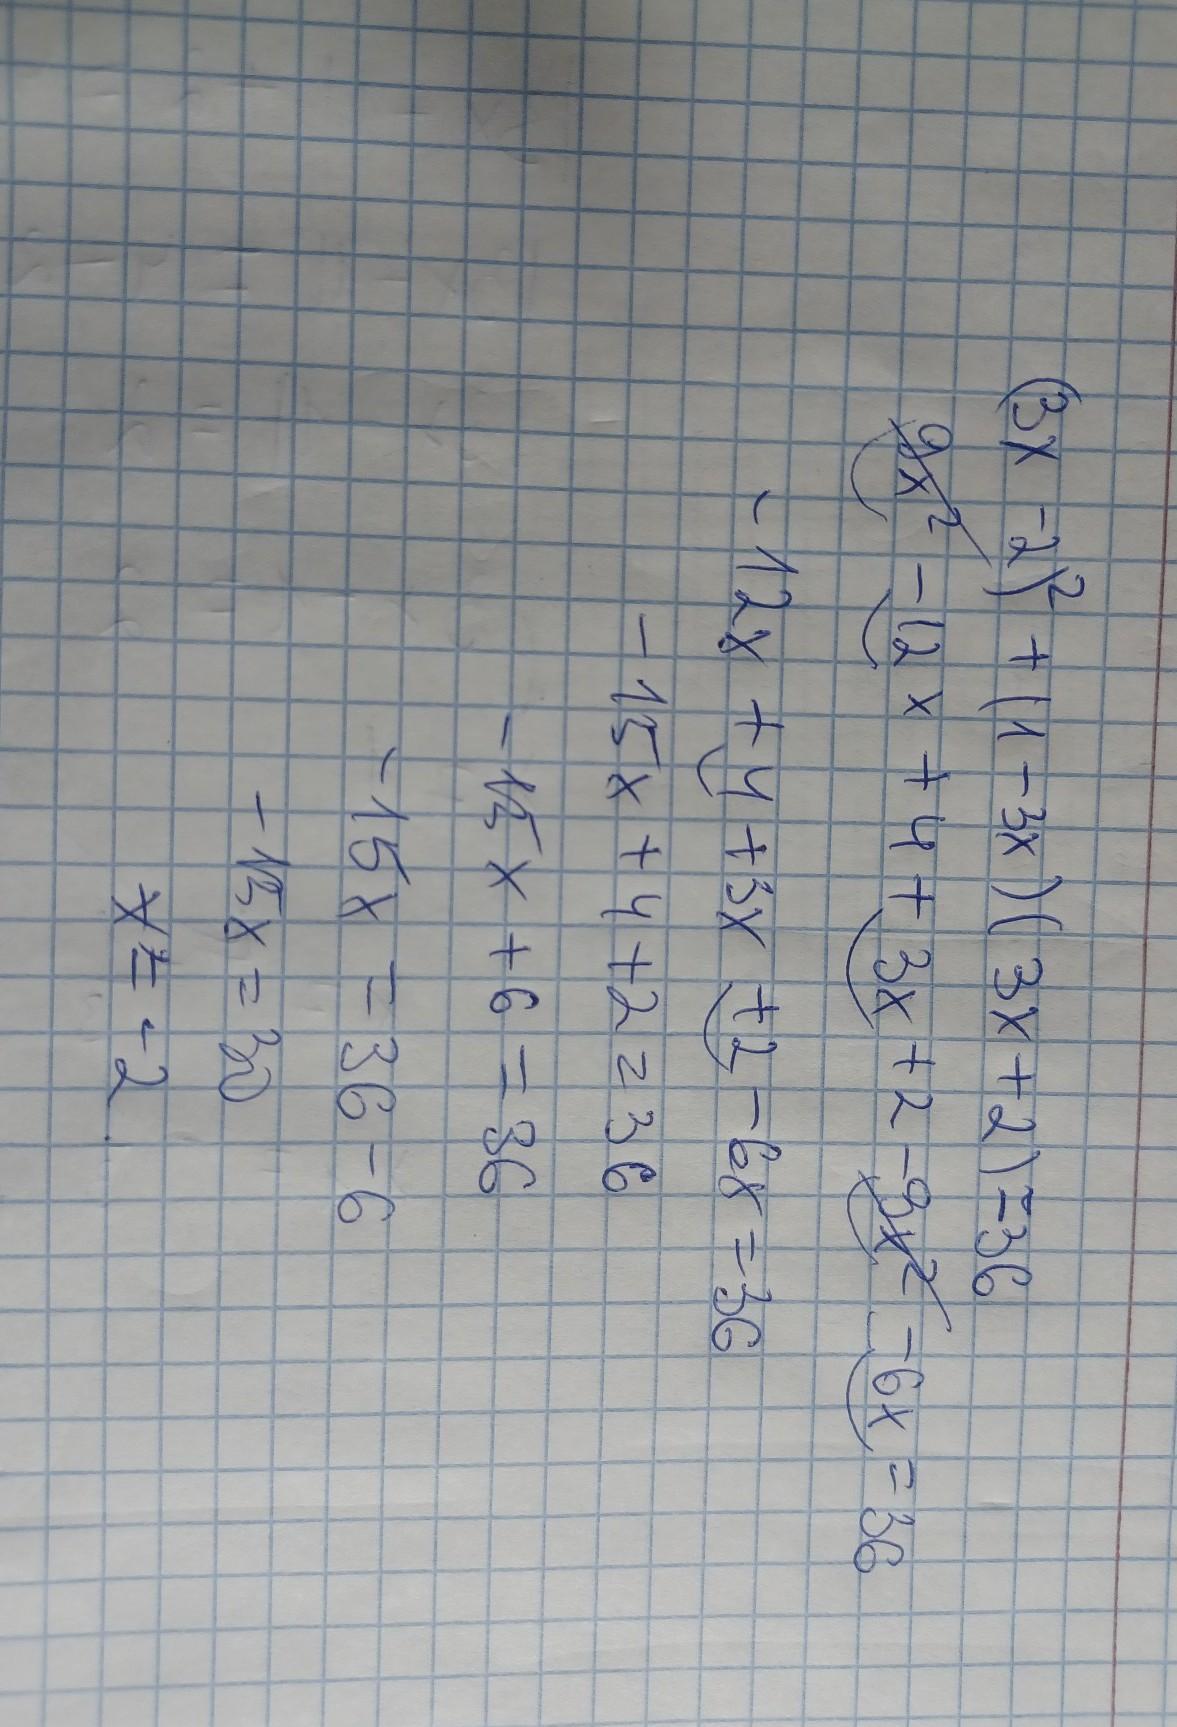 (3x - 2)² + (1 - 3x)(3x + 2) = 36
9x² - 12x + 4 + 3x + 2 - 9x² - 6x = 36
- 12x + 4 + 3x + 2 - 6x = 36
- 15x + 4 + 2 = 36
- 15x + 6 = 36
- 15x = 36 - 6
- 15x = 30
x = - 2